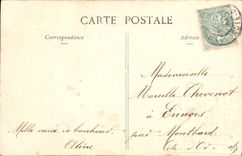 CARTE POSTALE
Correspondance
Adresse
Mademoiselle
Marcelle Chevenot
à Eringes
par Montbard
Côte d'Or
Mille vœux de bonheur